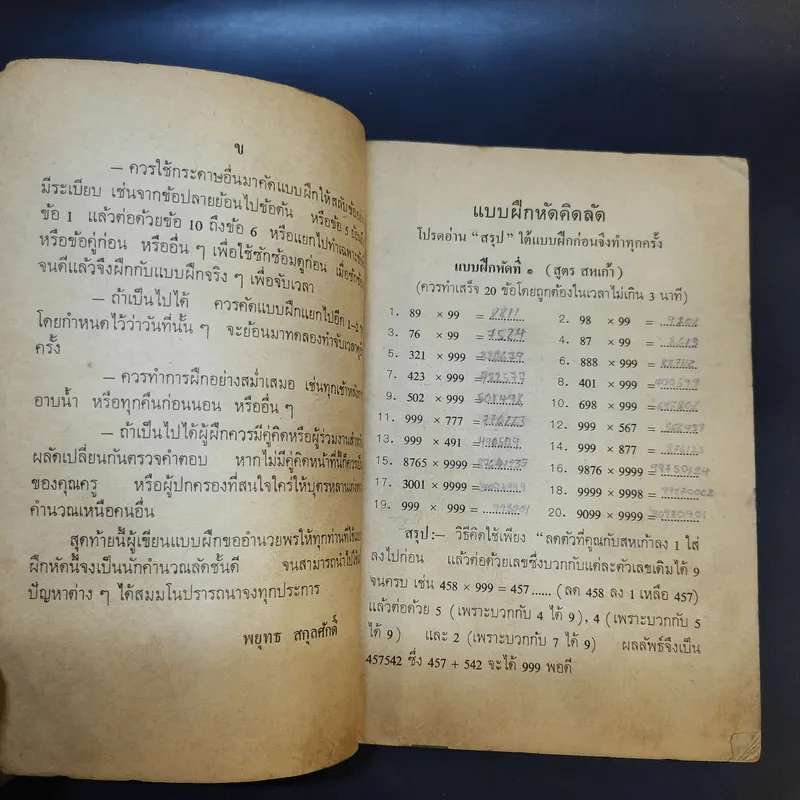 ข
– ควรใช้กระดาษอื่นมาคัดแบบฝึกให้สลับข้อ
มีระเบียบ เช่นจากข้อปลายย้อนไปข้อต้น หรือข้อ 5 ย้อน
ข้อ 1 แล้วต่อด้วยข้อ 10 ถึงข้อ 6 หรือแยกไปทำเฉพาะ
หรือข้อคู่ก่อน หรืออื่น ๆ เพื่อใช้ซักซ้อมดูก่อน เมื่อซักซ้อม
จนดีแล้วจึงฝึกกับแบบฝึกจริง ๆ เพื่อจับเวลา
– ถ้าเป็นไปได้ ควรคัดแบบฝึกแยกไปอีก 1–2
โดยกำหนดไว้ว่าวันที่นั้น ๆ จะย้อนมาทดลองทำจับเวลา
ครั้ง
– ควรทำการฝึกอย่างสม่ำเสมอ เช่นทุกเช้าหลัง
อาบน้ำ หรือทุกคืนก่อนนอน หรืออื่น ๆ
– ถ้าเป็นไปได้ผู้ฝึกควรมีคู่คิดหรือผู้ร่วมงานสำหรับ
ผลัดเปลี่ยนกันตรวจคำตอบ หากไม่มีคู่คิดหน้าที่นี้ก็ควรเป็น
ของคุณครู หรือผู้ปกครองที่สนใจใคร่ให้บุตรหลานเก่งทาง
คำนวณเหนือคนอื่น
สุดท้ายนี้ผู้เขียนแบบฝึกขออำนวยพรให้ทุกท่านที่ใช้แบบ
ฝึกหัดนี้จงเป็นนักคำนวณลัดชั้นดี จนสามารถนำไปใช้
ปัญหาต่าง ๆ ได้สมมโนปรารถนาจงทุกประการ
พยุทธ สกุลศักดิ์
แบบฝึกหัดคิดลัด
โปรดอ่าน “สรุป” ใต้แบบฝึกก่อนจึงทำทุกครั้ง
แบบฝึกหัดที่ ๑ (สูตร สหเก้า)
(ควรทำเสร็จ 20 ข้อโดยถูกต้องในเวลาไม่เกิน 3 นาที)
1. 89 × 99 = 8811 2. 98 × 99 = 9702
3. 76 × 99 = 7524 4. 87 × 99 = 8613
5. 321 × 999 = 320679 6. 888 × 999 =
7. 423 × 999 = 422577 8. 401 × 999 = 400599
9. 502 × 999 = 501498 10. 698 × 999 =
11. 999 × 777 = 776223 12. 999 × 567 = 566433
13. 999 × 491 = 490509 14. 999 × 877 = 876123
15. 8765 × 9999 = 16. 9876 × 9999 = 98750124
17. 3001 × 9999 = 18. 9999 × 9998 = 99970002
19. 999 × 999 = 998001 20. 9099 × 9999 = 90980901
สรุป:– วิธีคิดใช้เพียง “ลดตัวที่คูณกับสหเก้าลง 1 ใส่
ลงไปก่อน แล้วต่อด้วยเลขซึ่งบวกกับแต่ละตัวเลขเดิมได้ 9
จนครบ เช่น 458 × 999 = 457...... (ลด 458 ลง 1 เหลือ 457)
แล้วต่อด้วย 5 (เพราะบวกกับ 4 ได้ 9), 4 (เพราะบวกกับ 5
ได้ 9) และ 2 (เพราะบวกกับ 7 ได้ 9) ผลลัพธ์จึงเป็น
457542 ซึ่ง 457 + 542 จะได้ 999 พอดี